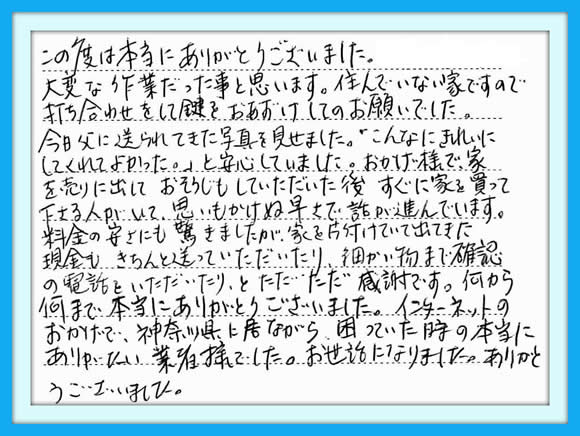 この度は本当にありがとうございました。
大変な作業だった事と思います。住んでいない家ですので
打ち合わせをして鍵をおあずけしてのお願いでした。
今日父に送られてきた写真を見せました。"こんなにきれいに
してくれてよかった。」と安心していました。おかげ様で、家
を売りに出して おそうじもしていただいた後 すぐに家を買って
下さる人がいて、思いもかけぬ早さで、話が進んでいます。
料金の安さにも 驚きましたが、家を片付けていて出てきた
現金も きちんと送っていただいたり、細かい物まで確認
の電話をいただいたり、と ただただ 感謝です。何から
何まで本当にありがとうございました。インターネットの
おかげで、神奈川県に居ながら、困っていた時の本当に
ありがたい 業者様でした。お世話になりました。ありがと
うございました。